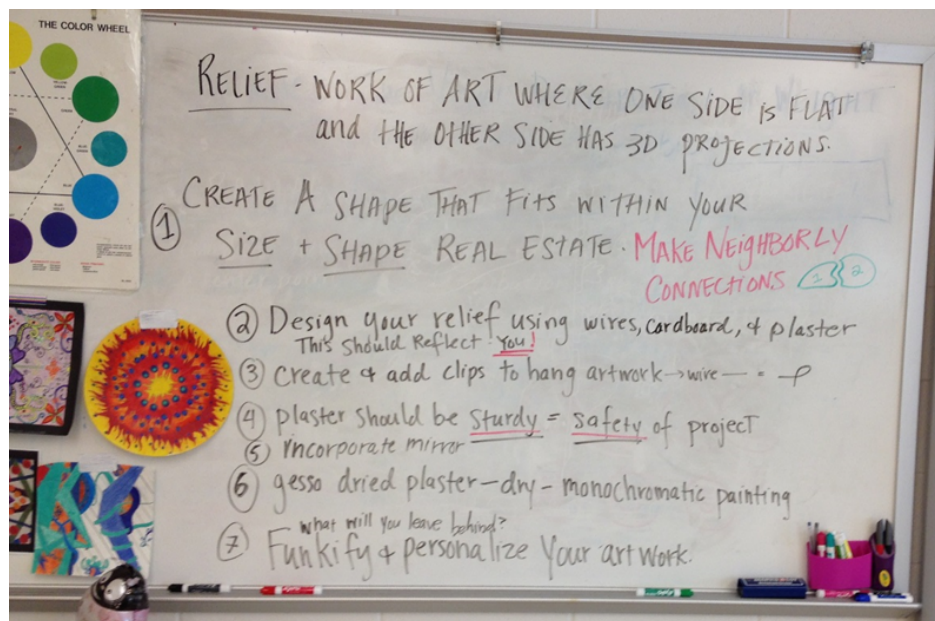 THE COLOR WHEEL
RELIEF - WORK OF ART WHERE ONE SIDE IS FLAT
and THE OTHER SIDE HAS 3D PROJECTIONS.
① CREATE A SHAPE THAT FITS WITHIN YOUR
SIZE + SHAPE REAL ESTATE. MAKE NEIGHBORLY
CONNECTIONS 1 2
② Design your relief using wires, cardboard, + plaster
This Should Reflect You!
③ create + add clips to hang artwork → wire —
④ plaster should be sturdy = safety of project
⑤ incorporate mirror
⑥ gesso dried plaster - dry - monochromatic painting
What will you leave behind?
⑦ Funkify + personalize your artwork.